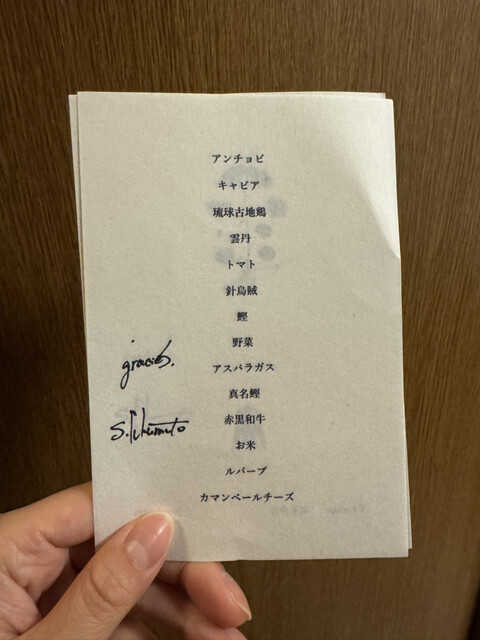 アンチョビ
キャビア
琉球古地鶏
雲丹
トマト
針烏賊
鰹
野菜
アスパラガス
真名鰹
赤黒和牛
お米
ルバーブ
カマンベールチーズ
gracias.